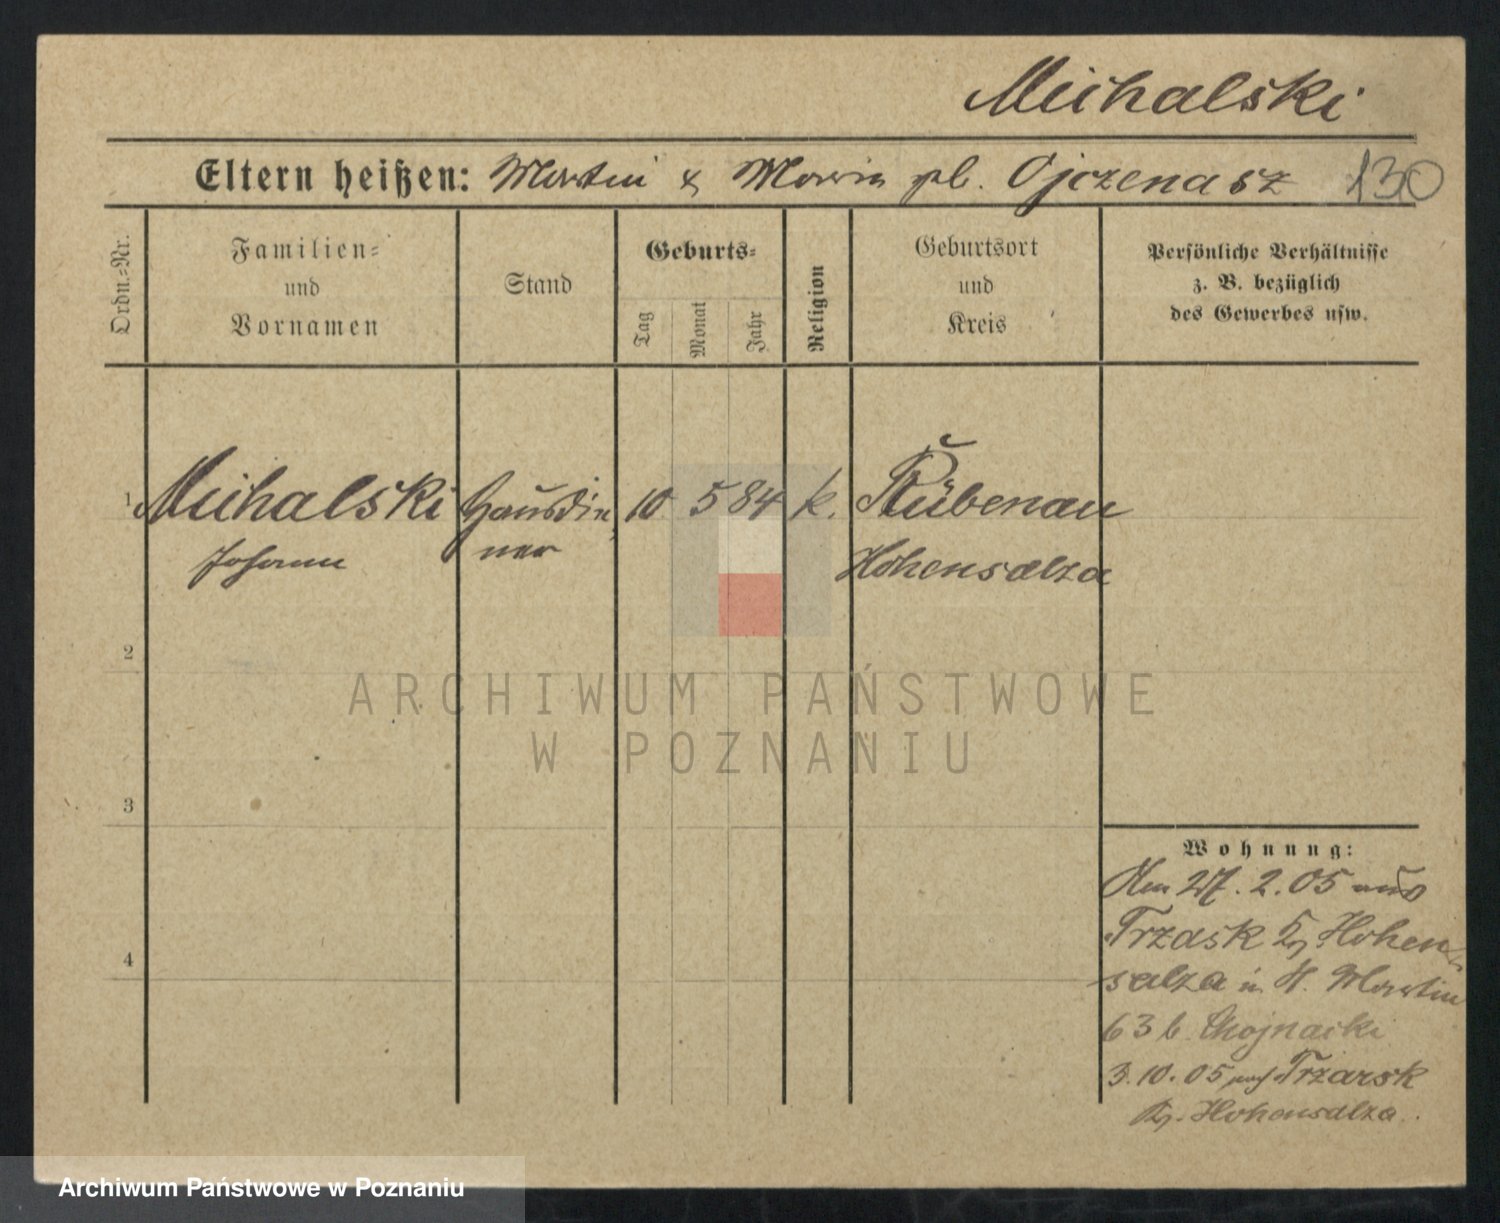 Michalski
Eltern heißen: Martin & Maria gb. Ojczenasz 130
Ordn.-Nr.
Familien-
und
Vornamen
Stand
Geburts-
Tag
Monat
Jahr
Religion
Geburtsort
und
Kreis
Persönliche Verhältnisse
z. B. bezüglich
des Gewerbes usw.
1 Michalski Hausdie 10 5 84 k. Rübenau
Johann ner Hohensalza
2
3
4
Wohnung:
Am 27. 2. 05 aus
Trzask Kr. Hohen
salza in St. Martin
63 b. Chojnacki
3. 10. 05 nach Trzarsk
Kr. Hohensalza.
ARCHIWUM PAŃSTWOWE
W POZNANIU
Archiwum Państwowe w Poznaniu